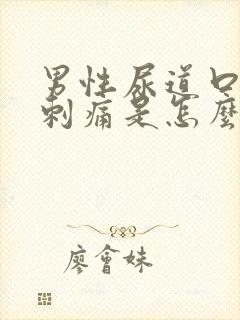 男性尿道口
刺痛是怎麼
廖會妹